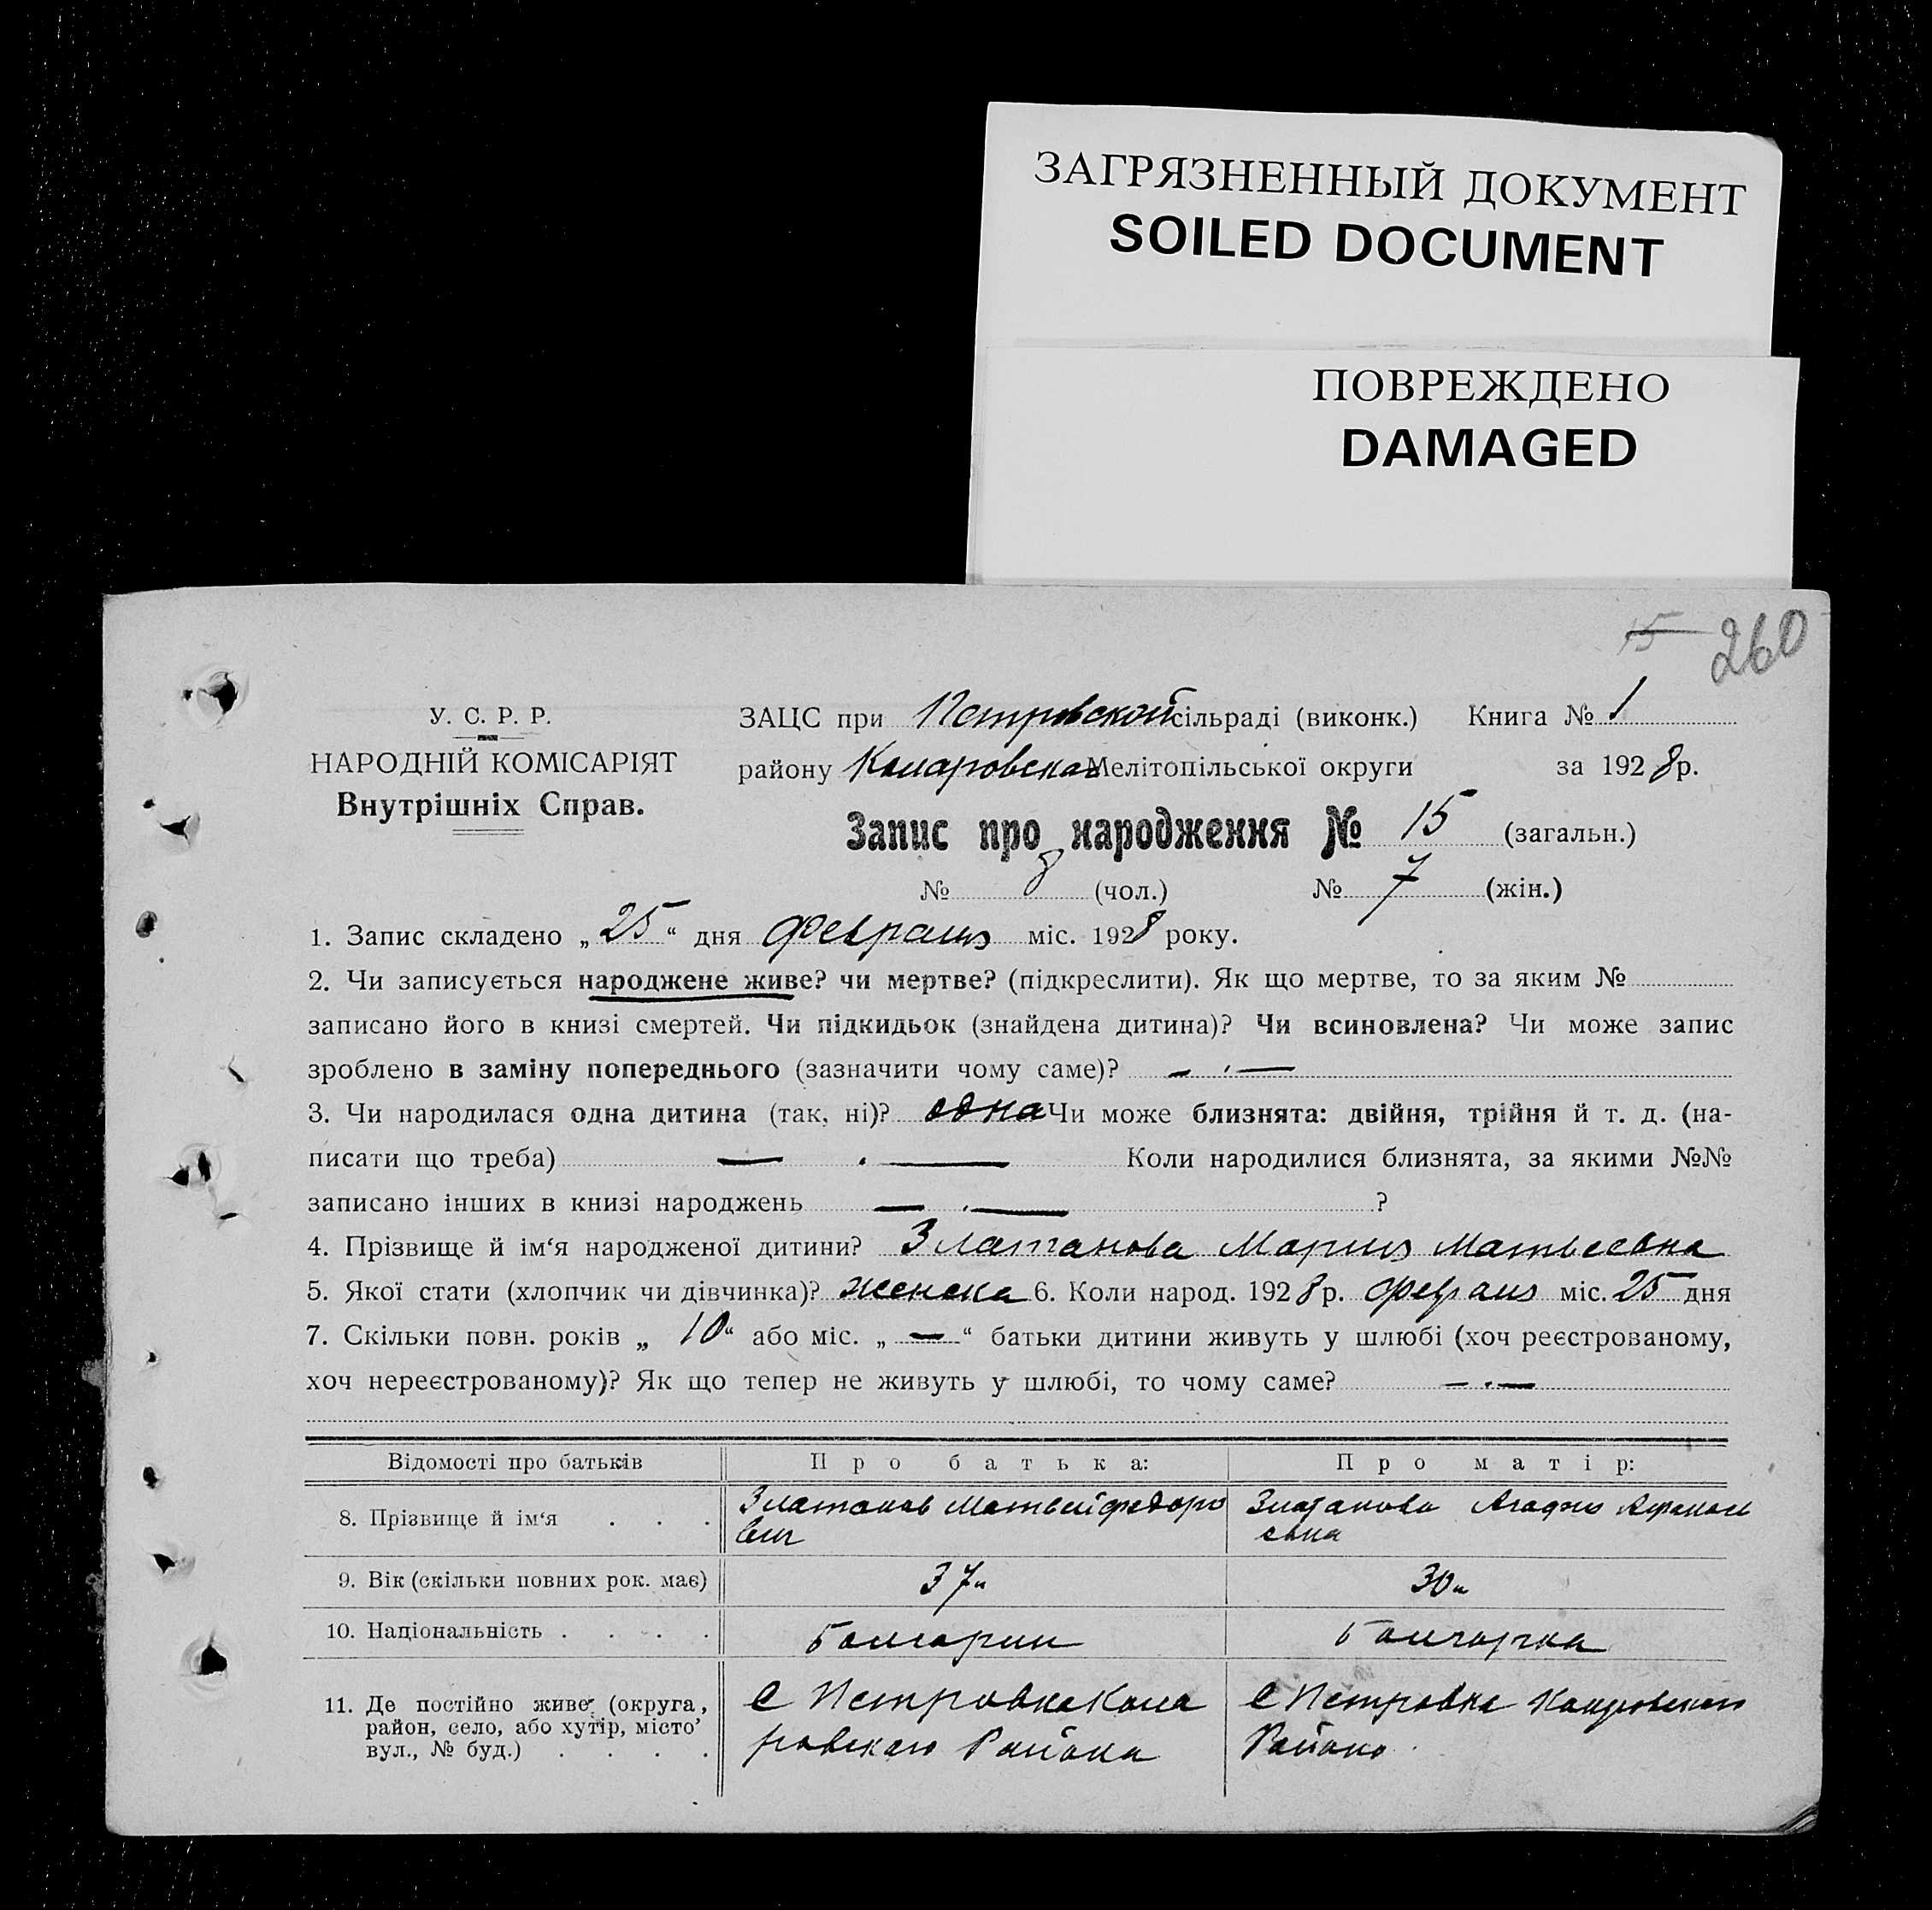 ЗАГРЯЗНЕННЫЙ ДОКУМЕНТ
SOILED DOCUMENT
ПОВРЕЖДЕНО
DAMAGED
15 260
У. С. Р. Р.
НАРОДНІЙ КОМІСАРІЯТ
Внутрішніх Справ.
ЗАЦС при Петровской сільраді (виконк.) Книга № 1
району Коларовская Мелітопільської округи за 1928 р.
Запис про народження № 15 (загальн.)
№ 8 (чол.) № 7 (жін.)
1. Запис складено „25“ дня февраля міс. 1928 року.
2. Чи записується народжене живе? чи мертве? (підкреслити). Як що мертве, то за яким №
записано його в книзі смертей. Чи підкидьок (знайдена дитина)? Чи всиновлена? Чи може запис
зроблено в заміну попереднього (зазначити чому саме)? — · —
3. Чи народилася одна дитина (так, ні)? одна Чи може близнята: двійня, трійня й т. д. (на-
писати що треба) — · — Коли народилися близнята, за якими №№
записано інших в книзі народжень — · — ?
4. Прізвище й ім‘я народженої дитини? Златанова Мария Матвеевна
5. Якої стати (хлопчик чи дівчинка)? женска 6. Коли народ. 1928 р. февраля міс. 25 дня
7. Скільки повн. років „10“ або міс. „—“ батьки дитини живуть у шлюбі (хоч реєстрованому,
хоч нереєстрованому)? Як що тепер не живуть у шлюбі, то чому саме? — · —
Відомості про батьків Про батька: Про матір:
8. Прізвище й ім‘я . . . Златанов Матвей Федоро
вич
Златанова
евна
9. Вік (скільки повних рок. має) 37 30
10. Національність . . . . Болгарин Болгарка
11. Де постійно живе (округа,
район, село, або хутір, місто’
вул., № буд.) . . . .
С Петровка Кола
ровскаго Района
С Петровка Коларовскаго
Района